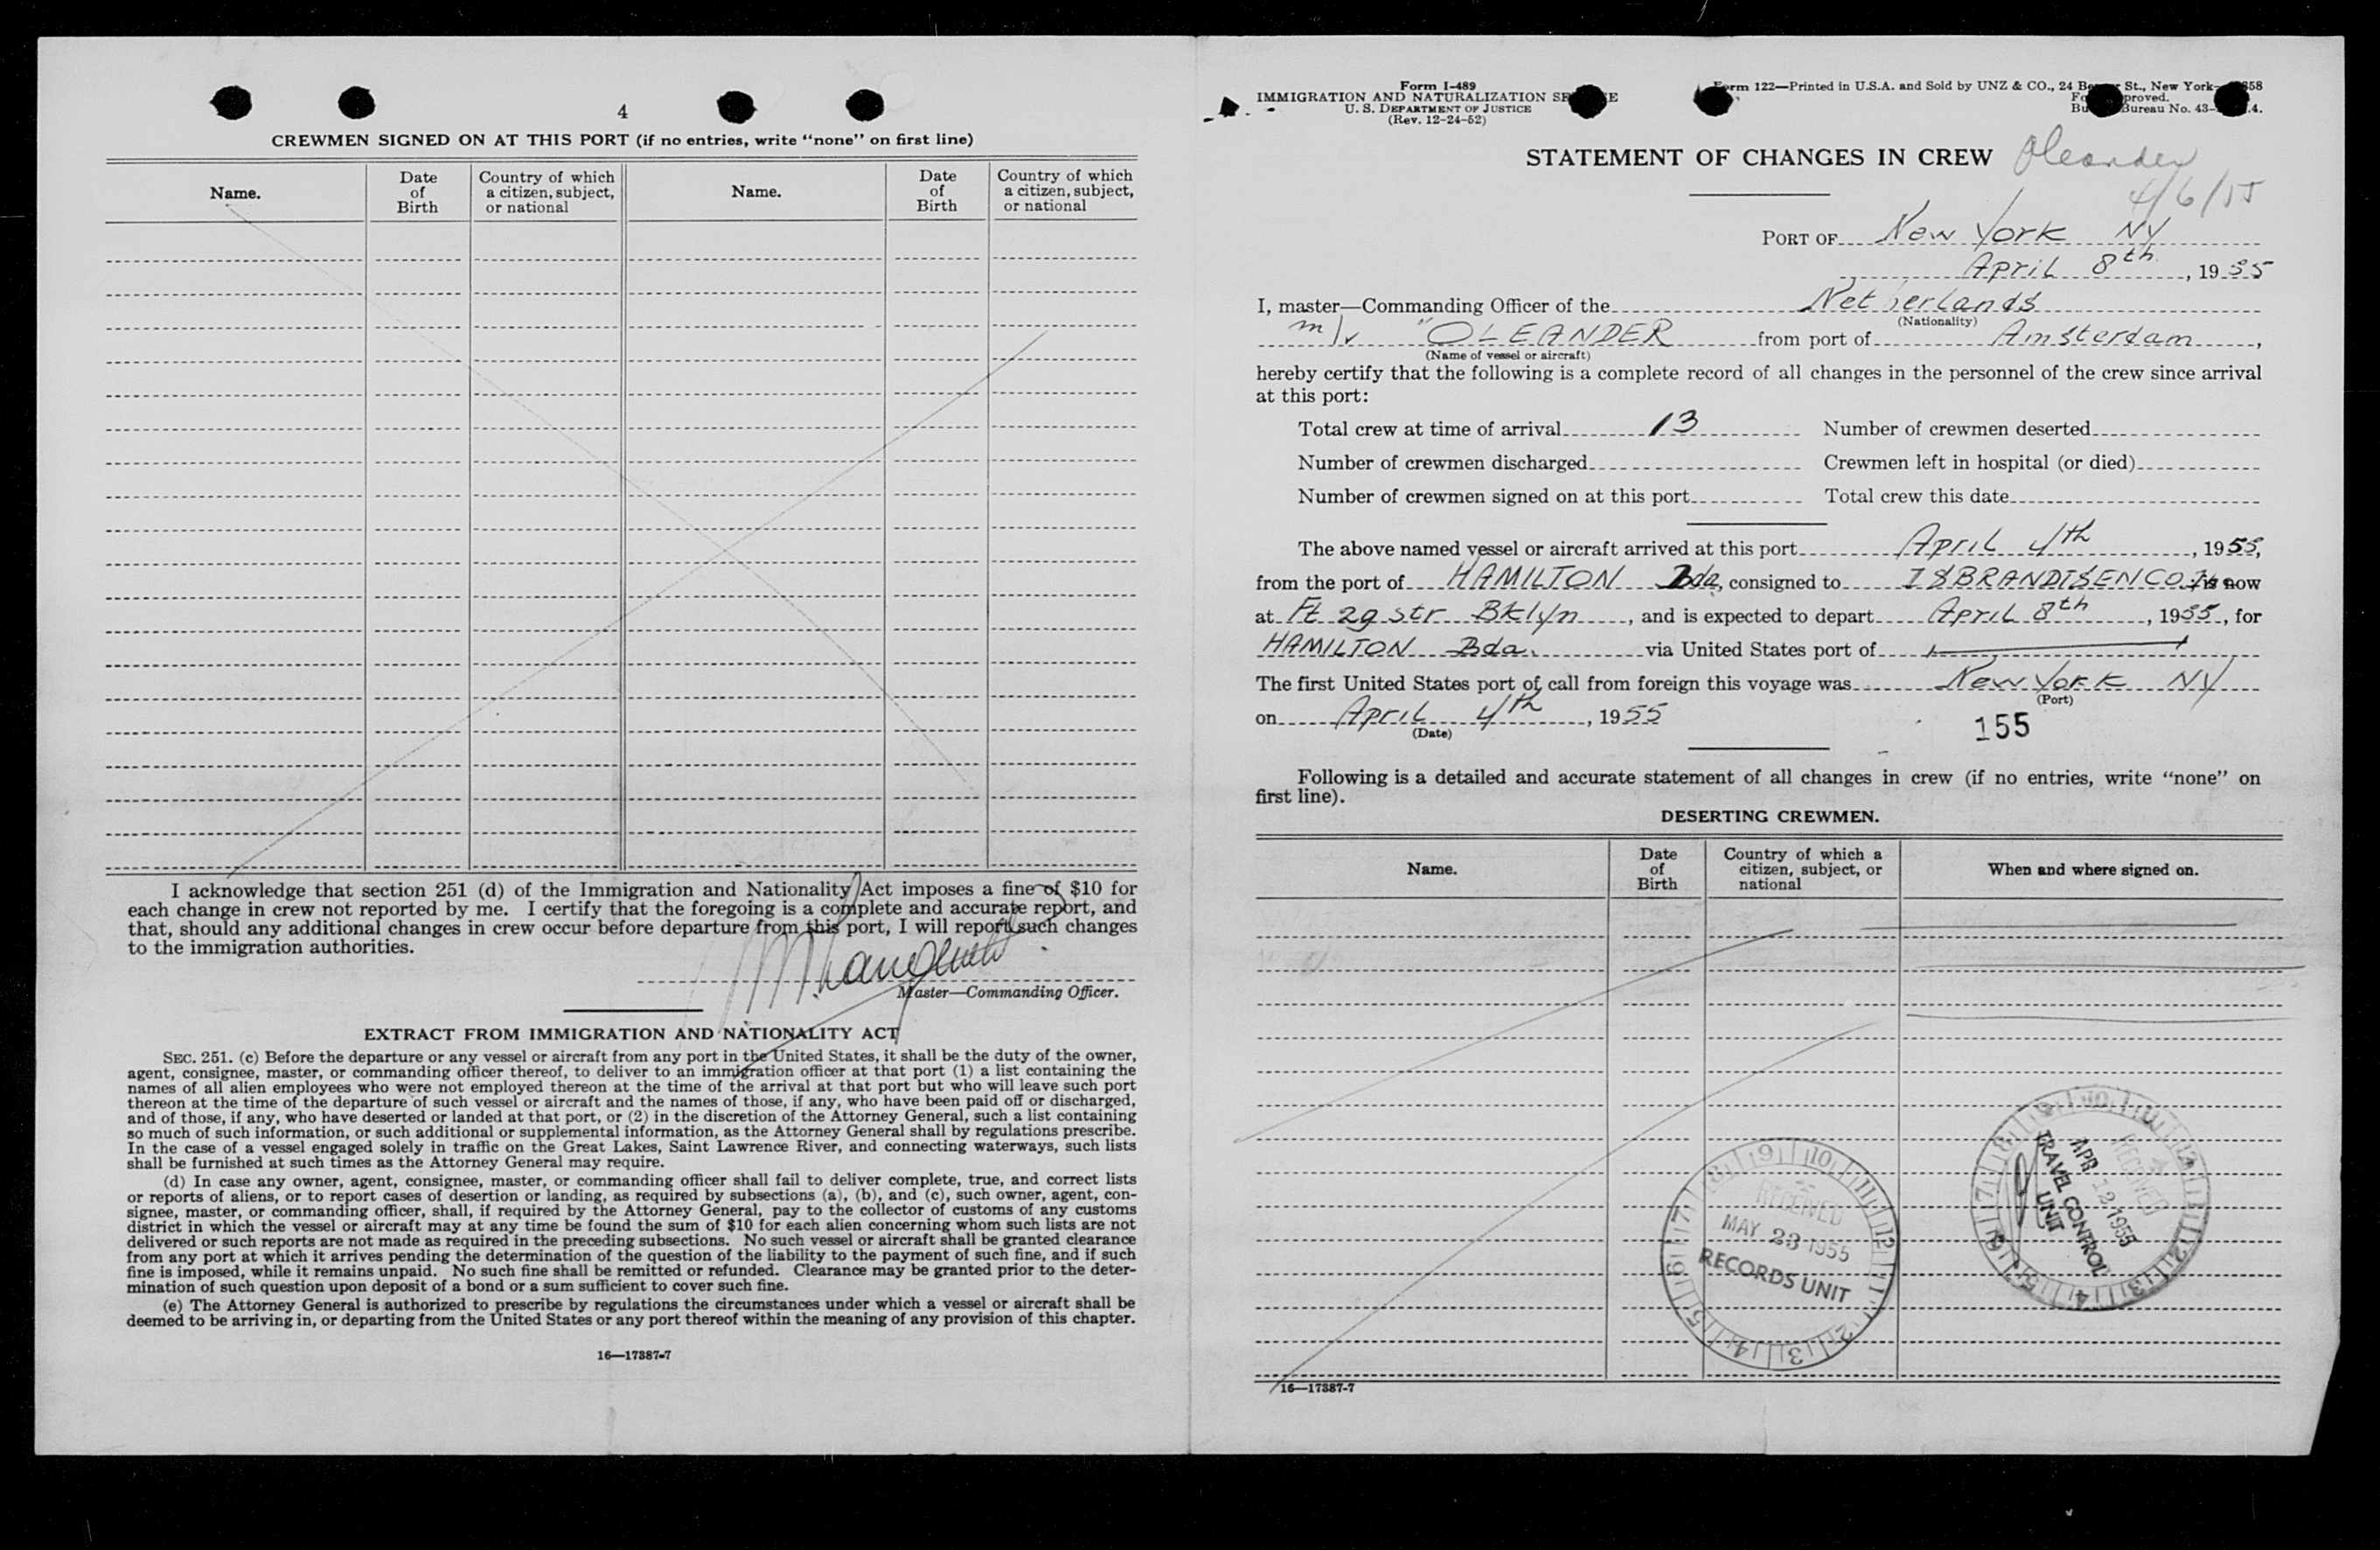 4
CREWMEN SIGNED ON AT THIS PORT (if no entries, write “none” on first line)
Name. Date of Birth Country of which a citizen, subject, or national Name. Date of Birth Country of which a citizen, subject, or national
I acknowledge that section 251 (d) of the Immigration and Nationality Act imposes a fine of $10 for
each change in crew not reported by me. I certify that the foregoing is a complete and accurate report, and
that, should any additional changes in crew occur before departure from this port, I will report such changes
to the immigration authorities.
Master—Commanding Officer.
EXTRACT FROM IMMIGRATION AND NATIONALITY ACT
SEC. 251. (c) Before the departure or any vessel or aircraft from any port in the United States, it shall be the duty of the owner,
agent, consignee, master, or commanding officer thereof, to deliver to an immigration officer at that port (1) a list containing the
names of all alien employees who were not employed thereon at the time of the arrival at that port but who will leave such port
thereon at the time of the departure of such vessel or aircraft and the names of those, if any, who have been paid off or discharged,
and of those, if any, who have deserted or landed at that port, or (2) in the discretion of the Attorney General, such a list containing
so much of such information, or such additional or supplemental information, as the Attorney General shall by regulations prescribe.
In the case of a vessel engaged solely in traffic on the Great Lakes, Saint Lawrence River, and connecting waterways, such lists
shall be furnished at such times as the Attorney General may require.
(d) In case any owner, agent, consignee, master, or commanding officer shall fail to deliver complete, true, and correct lists
or reports of aliens, or to report cases of desertion or landing, as required by subsections (a), (b), and (c), such owner, agent, con-
signee, master, or commanding officer, shall, if required by the Attorney General, pay to the collector of customs of any customs
district in which the vessel or aircraft may at any time be found the sum of $10 for each alien concerning whom such lists are not
delivered or such reports are not made as required in the preceding subsections. No such vessel or aircraft shall be granted clearance
from any port at which it arrives pending the determination of the question of the liability to the payment of such fine, and if such
fine is imposed, while it remains unpaid. No such fine shall be remitted or refunded. Clearance may be granted prior to the deter-
mination of such question upon deposit of a bond or a sum sufficient to cover such fine.
(e) The Attorney General is authorized to prescribe by regulations the circumstances under which a vessel or aircraft shall be
deemed to be arriving in, or departing from the United States or any port thereof within the meaning of any provision of this chapter.
16—17387-7
Form I-489
IMMIGRATION AND NATURALIZATION
U. S. DEPARTMENT OF JUSTICE
(Rev. 12-24-52)
Form 122—Printed in U.S.A. and Sold by UNZ & CO., 24 St., New York
Bureau No. 43-
STATEMENT OF CHANGES IN CREW Oleander
4/6/55
PORT OF New York NY
April 8th, 1955
I, master—Commanding Officer of the Netherlands
(Nationality)
m/v "OLEANDER from port of Amsterdam,
(Name of vessel or aircraft)
hereby certify that the following is a complete record of all changes in the personnel of the crew since arrival
at this port:
Total crew at time of arrival 13 Number of crewmen deserted
Number of crewmen discharged Crewmen left in hospital (or died)
Number of crewmen signed on at this port Total crew this date
The above named vessel or aircraft arrived at this port April 4th, 1955,
from the port of HAMILTON Bda, consigned to ISBRANDTSEN CO. is now
at Ft 29 str Bklyn, and is expected to depart April 8th, 1955, for
HAMILTON Bda. via United States port of
The first United States port of call from foreign this voyage was New York NY
(Port)
on April 4th, 1955
(Date)
155
Following is a detailed and accurate statement of all changes in crew (if no entries, write “none” on
first line).
DESERTING CREWMEN.
Name. Date of Birth Country of which a citizen, subject, or national When and where signed on.
RECEIVED
MAY 23 1955
RECORDS UNIT
RECEIVED
APR 12 1955
TRAVEL CONTROL
UNIT
16—17387-7